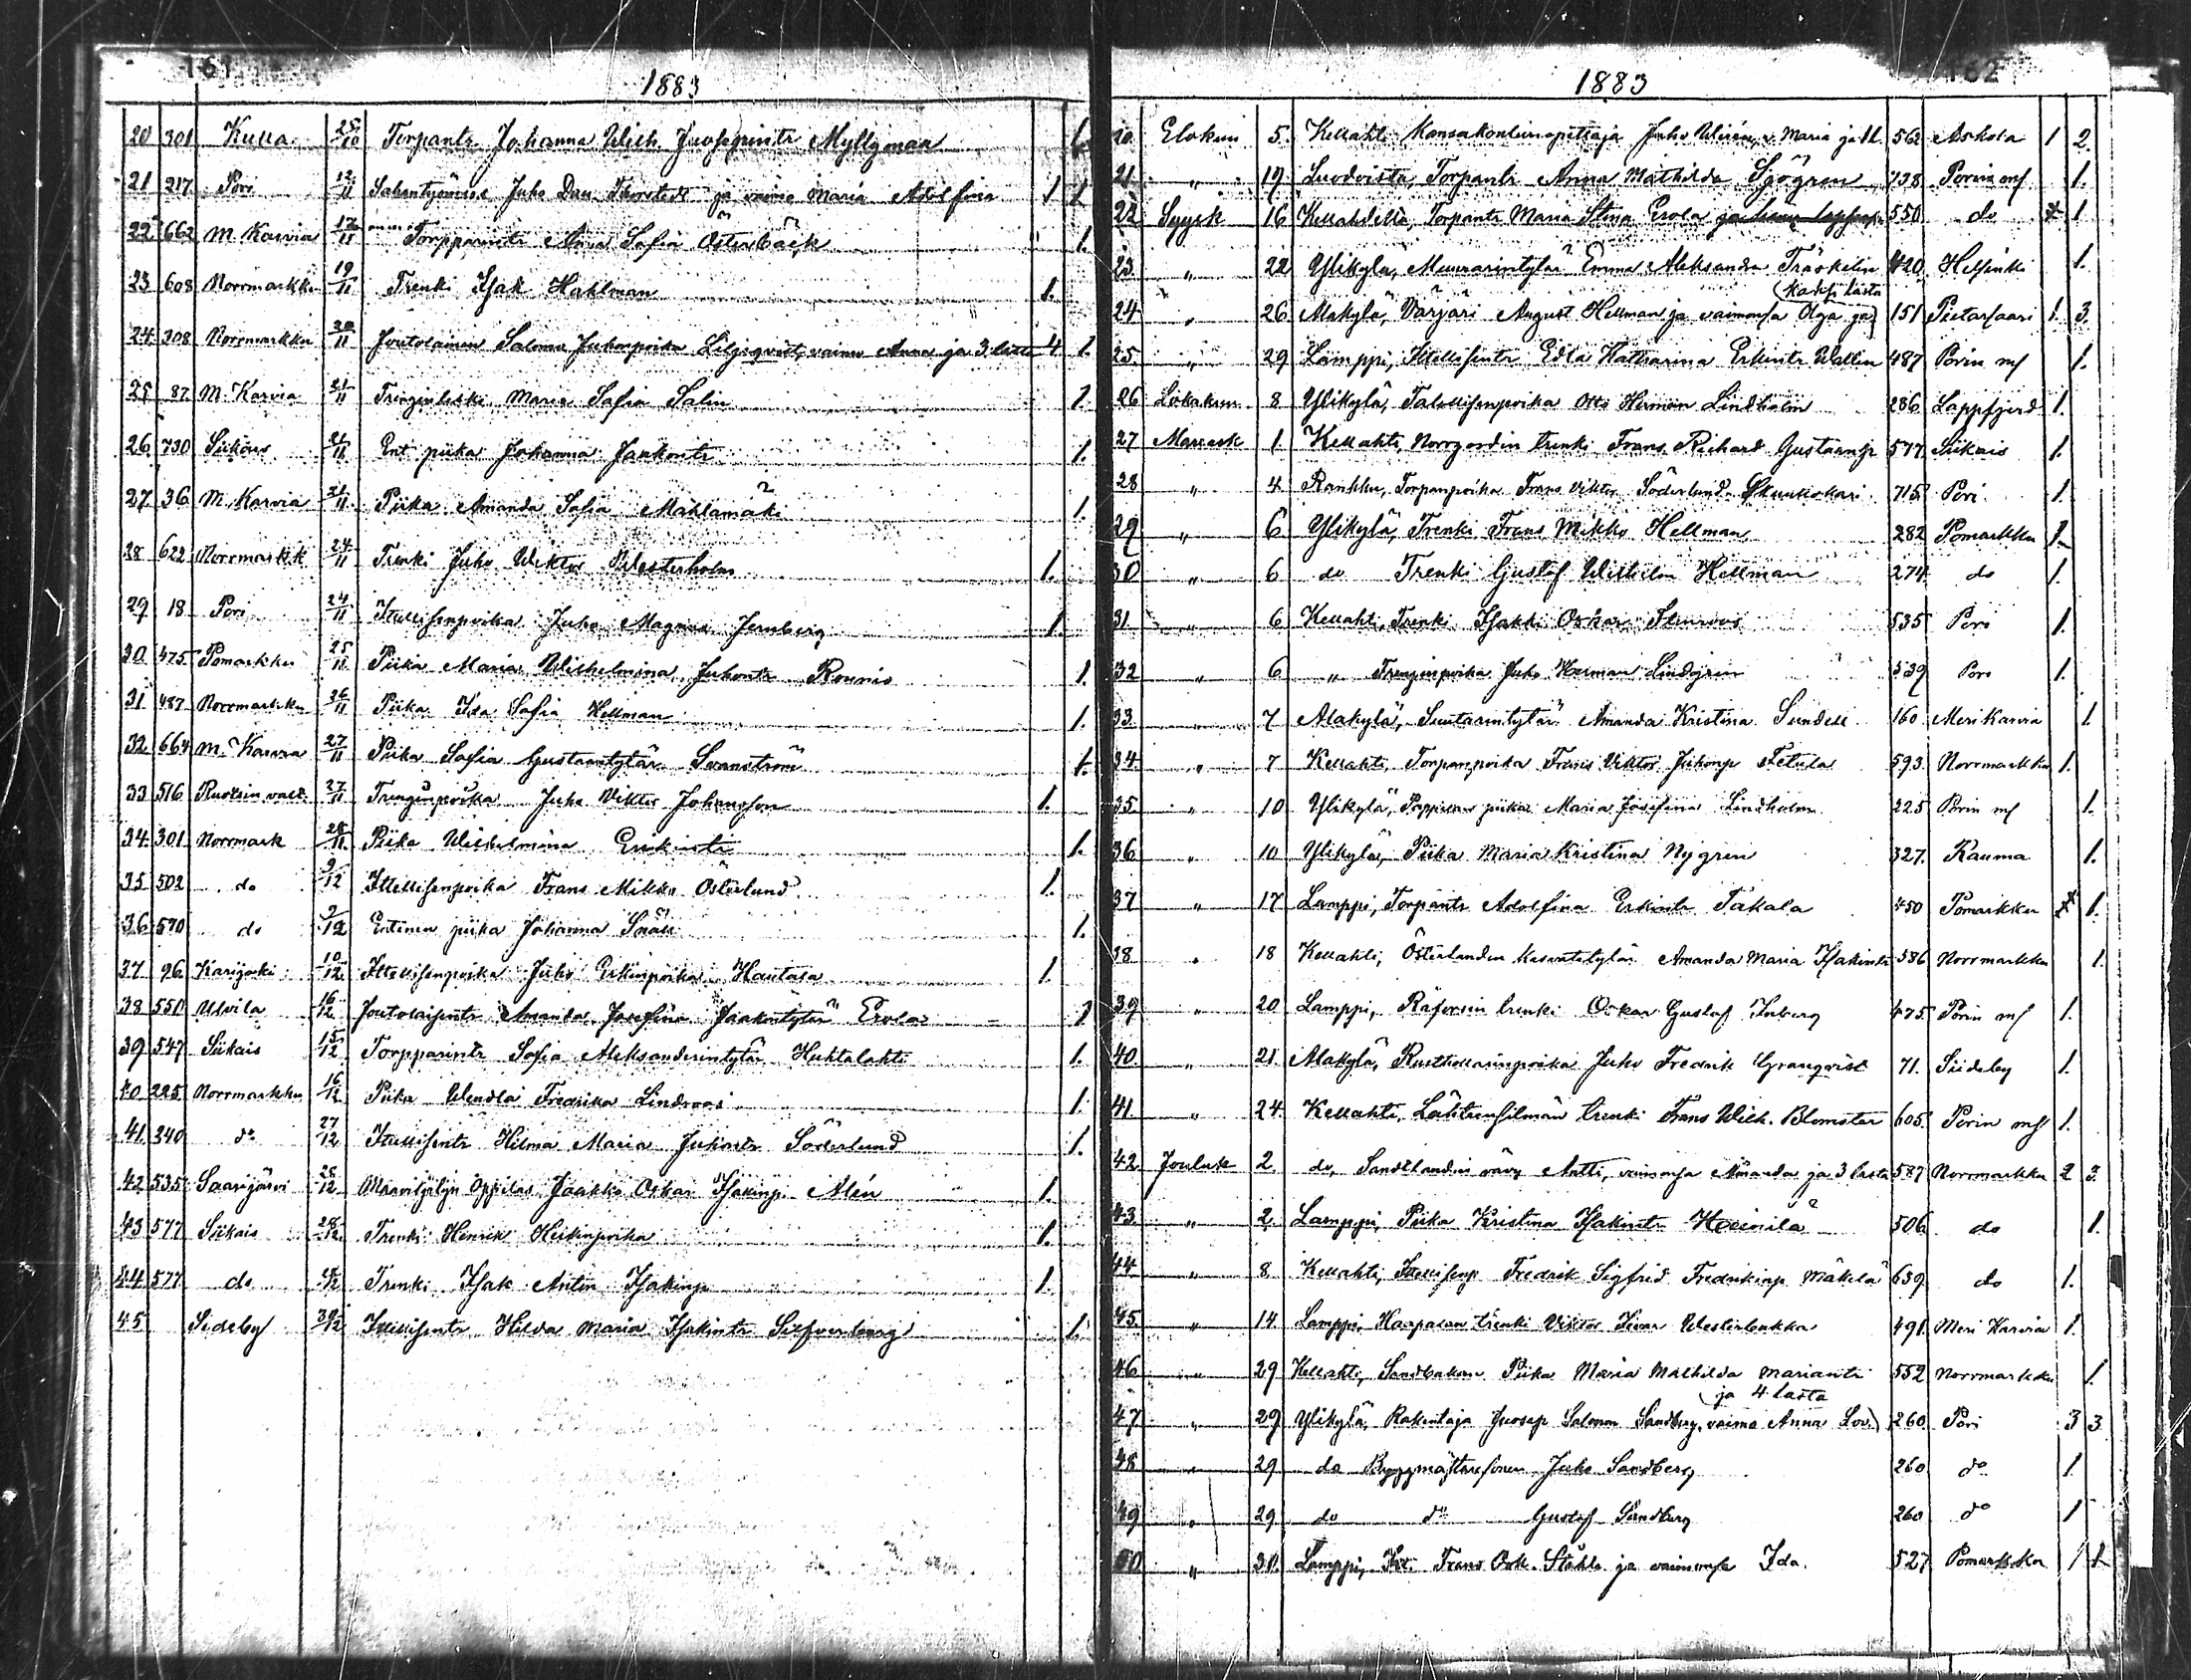 161
1883
20 301 Kulla 25/10 Torpantr Johanna Wilh. Juosepintr Myllymaa 1.
21 217 Pori 12/11 Sahantyömies Juho Dan. Thorstedt ja vaimo Maria Adolfina 1 1
22 662 M. Karvia 17/11 Torpparintr Anna Sofia Österback 1.
23 608 Norrmarkku 19/11 Trenki Isak Hahlman 1.
24 308 Norrmarkku 20/11 Joutolainen Salomo Juhonpoika Liljeqvist, vaimo Anna ja 3 lasta 4. 1.
25 87 M. Karvia 21/11 Trenginleski Maria Sofia Salin 1
26 730 Siikais 21/11 Ent. piika Johanna Jaakontr 1.
27 36 M. Karvia 21/11 Piika Amanda Sofia Mahlamäki 1.
28 622 Norrmarkk 24/11 Trenki Juho Wiktor Westerholm 1.
29 18 Pori 24/11 Itsellisenpoika Juho Magnus Jernberg 1.
30 475 Pomarkku 25/11 Piika Maria Wilhelmina Juhontr Rounio 1.
31 487 Norrmarkku 26/11 Piika Ida Sofia Hellman 1.
32 664 M. Karvia 27/11 Piika Sofia Gustaantytär Svanström 1.
33 516 Ruotsin vall. 27/11 Trenginpoika Juho Viktor Johansson 1.
34 301 Norrmark 28/11 Piika Wilhelmina Erikintr 1.
35 502 do 9/12 Itsellisenpoika Frans Mikko Österlund 1.
36 570 do 9/12 Entinen piika Johanna Snäll 1.
37 96 Karijoki 10/12 Itsellisenpoika Juho Erkinpoika Hautala 1.
38 550 Ulvila 16/12 Joutolaisentr Amanda Josefina Jaakontytär Erola 1
39 547 Siikais 15/12 Torpparintr Sofia Aleksanderintytär Huhtalahti 1.
40 225 Norrmarkku 16/12 Piika Wendla Fredrika Lindroos 1.
41 340 do 27/12 Itsellisentr Hilma Maria Juhontr Söderlund 1.
42 535 Saarijärvi 28/12 Maaviljelyn Oppilas Jaakko Oskar Isakinp. Alén 1.
43 577 Siikais 28/12 Trenki Henrik Heikinpoika 1.
44 577 do 28/12 Trenki Isak Antin Isakinp 1.
45 Sideby 30/12 Itsellisentr Hilda Maria Isakintr Silfverberg 1.
162
1883
20 Elokuu 5. Kellahti Kansakoulunopettaja Juho Wirén, v. Maria ja 1 l. 562 Askola 1 2.
21 " 19. Suodoista, Torpantr Anna Mathilda Sjögren 738 Porin ms 1.
22 Syysk 16 Kellahdella, Torpantr Maria Stina Erola 550 do 1
23. " 22 Ylikylä, Muurarintytär Emma Aleksandra Träskelin 420 Helsinki 1.
(kaksi lasta
24 " 26. Alakylä, Värjäri August Hellman ja vaimonsa Olga ja) 151 Pietarsaari 1. 3.
25 " 29 Lamppi, Itsellisentr Edla Katharina Erkintr Wallin 487 Porin ms 1.
26 Lokakuu 8 Ylikylä, Talollisenpoika Otto Herman Lindholm 286 Lappfjerd 1.
27 Marrask 1. Kellahti, Norrgordin trenki Frans Richard Gustaanp 577 Siikais 1.
28 " 4. Rankku, Torpanpoika Frans Viktor Söderlund 715 Pori 1.
29 " 6 Ylikylä, Trenki Frans Mikko Hellman 282 Pomarkku 1.
30 " 6 do Trenki Gustaf Wilhelm Hellman 274 do 1.
31 " 6 Kellahti, Trenki Isakki Oskar Stenroos 535 Pori 1.
32 " 6 " Trenginpoika Juho Herman Lindgren 539 Pori 1.
33. " 7 Alakylä, Suutarintytär Amanda Kristina Sundell 160 Merikarvia 1.
34. " 7 Kellahti, Torpanpoika Frans Viktor Juhonp Fetula 593. Norrmarkku 1.
35. " 10 Ylikylä, piika Maria Josefina Lindholm 225 Porin ms 1.
36 " 10 Ylikylä, Piika Maria Kristina Nygren 327. Rauma 1.
37 " 17 Lamppi, Torpantr Adolfina Erkintr Takala 450 Pomarkku 1.
38 " 18 Kellahti, Österlundin kasvatetytär Amanda Maria Isakintr 586 Norrmarkku 1.
39 " 20 Lamppi, Räforsin trenki Oskar Gustaf Inberg 475 Porin ms 1.
40. " 21. Alakylä, Ruottiollaninpoika Juho Fredrik Granqvist 71. Siideby 1.
41 " 24. Kellahti, Lähteensilmän trenki Frans Wilh. Blomster 605. Porin ms 1.
42. Jouluk 2 do, Sandtlundin vävy Antti, vaimonsa Amanda ja 3 lasta 587 Norrmarkku 2 3.
43. " 2. Lamppi, Piika Kristina Isakintr Heinilä 506. do 1.
44 " 8 Kellahti, Itsellisenp Fredrik Sigfrid Fredrikinp Mäkelä 639 do 1.
45. " 14. Lamppi, Haapalan trenki Viktor Iivar Westerbakka 491. Meri Karvia 1.
46 " 29 Kellahti, Sandbackan Piika Maria Mathilda Mariantr 552 Norrmarkku 1.
(ja 4 lasta
47 " 29 Ylikylä, Rakentaja Juosep Salomon Sandberg, vaimo Anna Lov.) 260 Pori 3 3
48 " 29 do Byggmästaresonen Juho Sandberg 260 do 1.
49 " 29 do do Gustaf Sandberg 260 do 1
50 " 31. Lamppi, Frans Osk. Ståhle ja vaimonsa Ida 527 Pomarkku 1 1